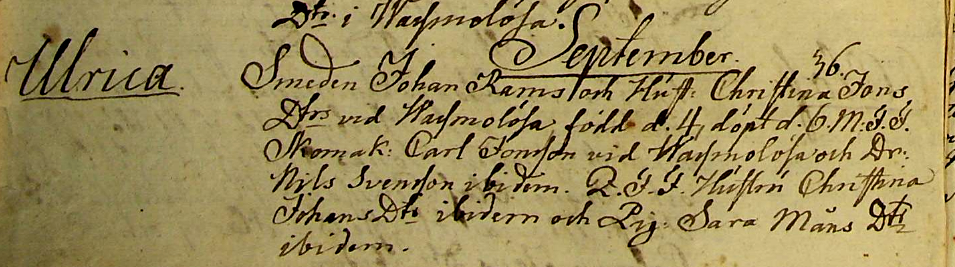 Dtr. i Waxmolösa.
September.
Ulrica. Smeden Johan Rams och Hust: Christina Jons 36.
Dtrs vid Waxmolösa född d. 4, döpt d. 6. M. J. J.
Skomak: Carl Jonsson vid Waxmolösa och Dr:
Nils Svensson ibidem. Q. J. J. Hustru Christina
Johans Dtr ibidem och Pig: Sara Måns Dtr
ibidem.